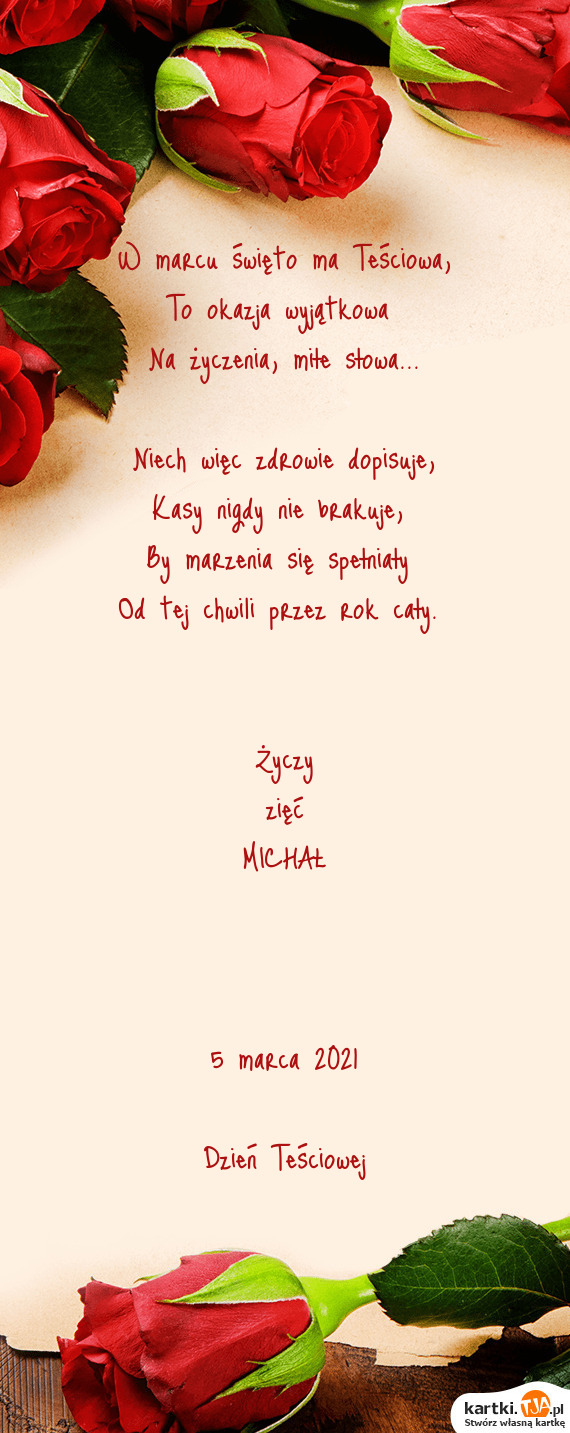 W marcu święto ma Teściowa,
To okazja wyjątkowa
Na życzenia, miłe słowa...
Niech więc zdrowie dopisuje,
Kasy nigdy nie brakuje,
By marzenia się spełniały
Od tej chwili przez rok cały.
Życzy
zięć
MICHAŁ
5 marca 2021
Dzień Teściowej
kartki.TJA.pl
Stwórz własną kartkę